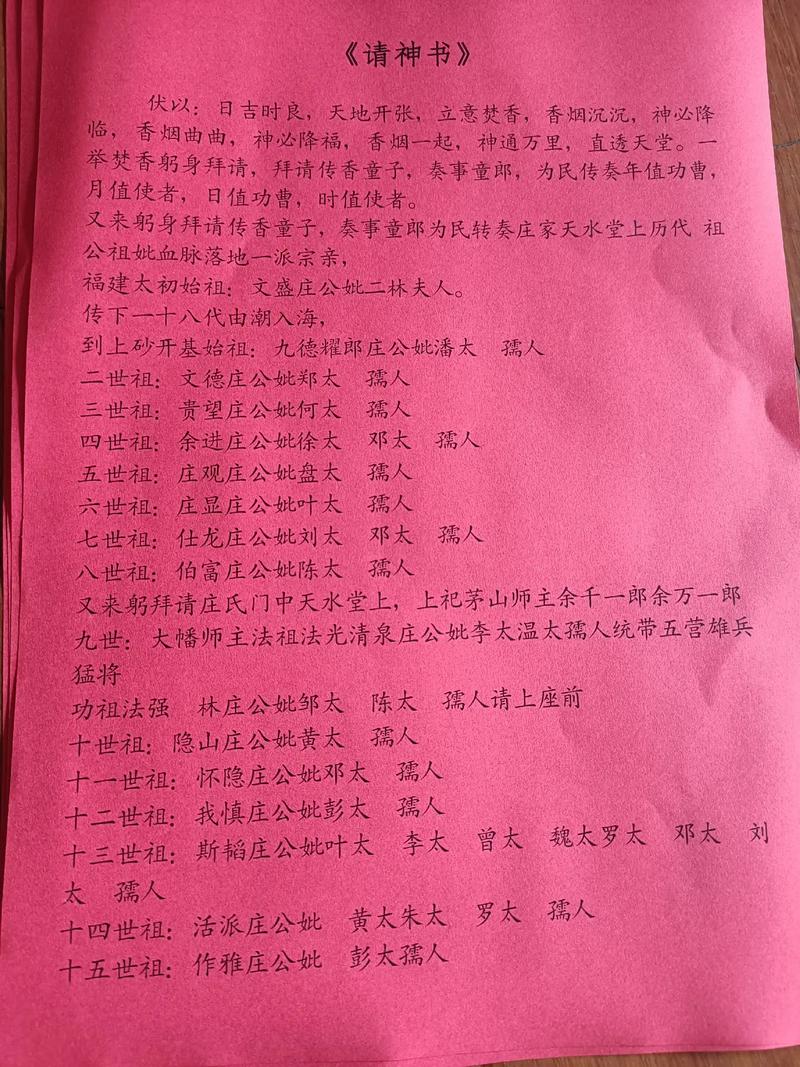 《请神书》
伏以：日吉时良，天地开张，立意焚香，香烟沉沉，神必降
临，香烟曲曲，神必降福，香烟一起，神通万里，直透天堂。一
举焚香躬身拜请，拜请传香童子，奏事童郎，为民传奏年值功曹，
月值使者，日值功曹，时值使者。
又来躬身拜请传香童子，奏事童郎为民转奏庄家天水堂上历代 祖
公祖妣血脉落地一派宗亲，
福建太初始祖：文盛庄公妣二林夫人。
传下一十八代由潮入海，
到上砂开基始祖：九德耀郎庄公妣潘太 孺人
二世祖：文德庄公妣郑太 孺人
三世祖：贵望庄公妣何太 孺人
四世祖：余进庄公妣徐太 邓太 孺人
五世祖：庄观庄公妣盘太 孺人
六世祖：庄显庄公妣叶太 孺人
七世祖：仕龙庄公妣刘太 邓太 孺人
八世祖：伯富庄公妣陈太 孺人
又来躬拜请庄氏门中天水堂上，上祀茅山师主余千一郎余万一郎
九世：大幡师主法祖法光清泉庄公妣李太温太孺人统带五营雄兵
猛将
功祖法强 林庄公妣邹太 陈太 孺人请上座前
十世祖：隐山庄公妣黄太 孺人
十一世祖：怀隐庄公妣邓太 孺人
十二世祖：我慎庄公妣彭太 孺人
十三世祖：斯韬庄公妣叶太 李太 曾太 魏太罗太 邓太 刘
太 孺人
十四世祖：活派庄公妣 黄太朱太 罗太 孺人
十五世祖：作雅庄公妣 彭太孺人